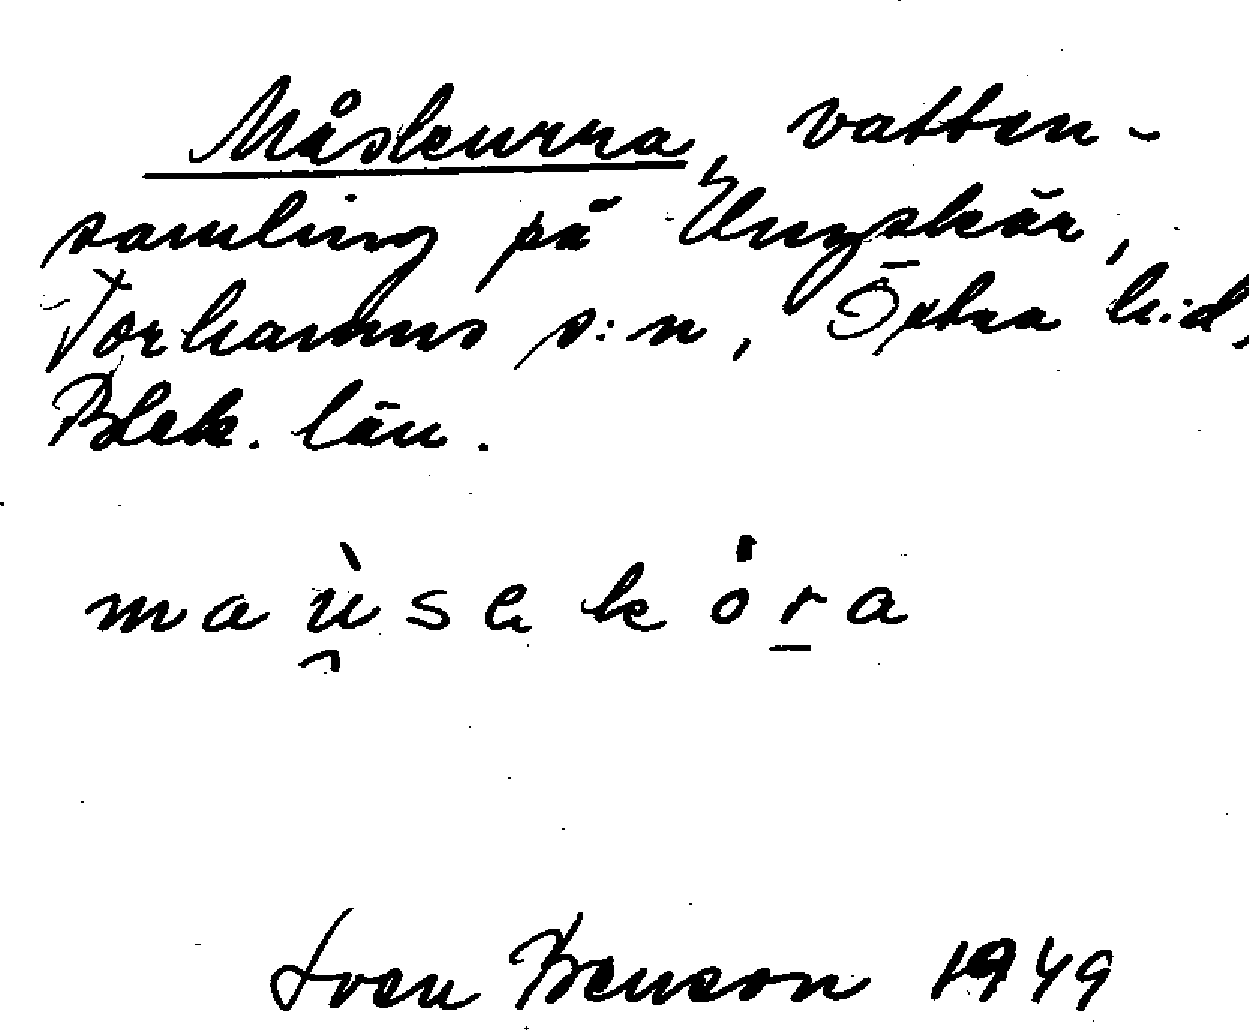 Måskurra, vatten-
samling på Ungskär,
Torhamns s:n, Östra h:d,
Blek. län.
maùsekóra
Sven Benson 1949